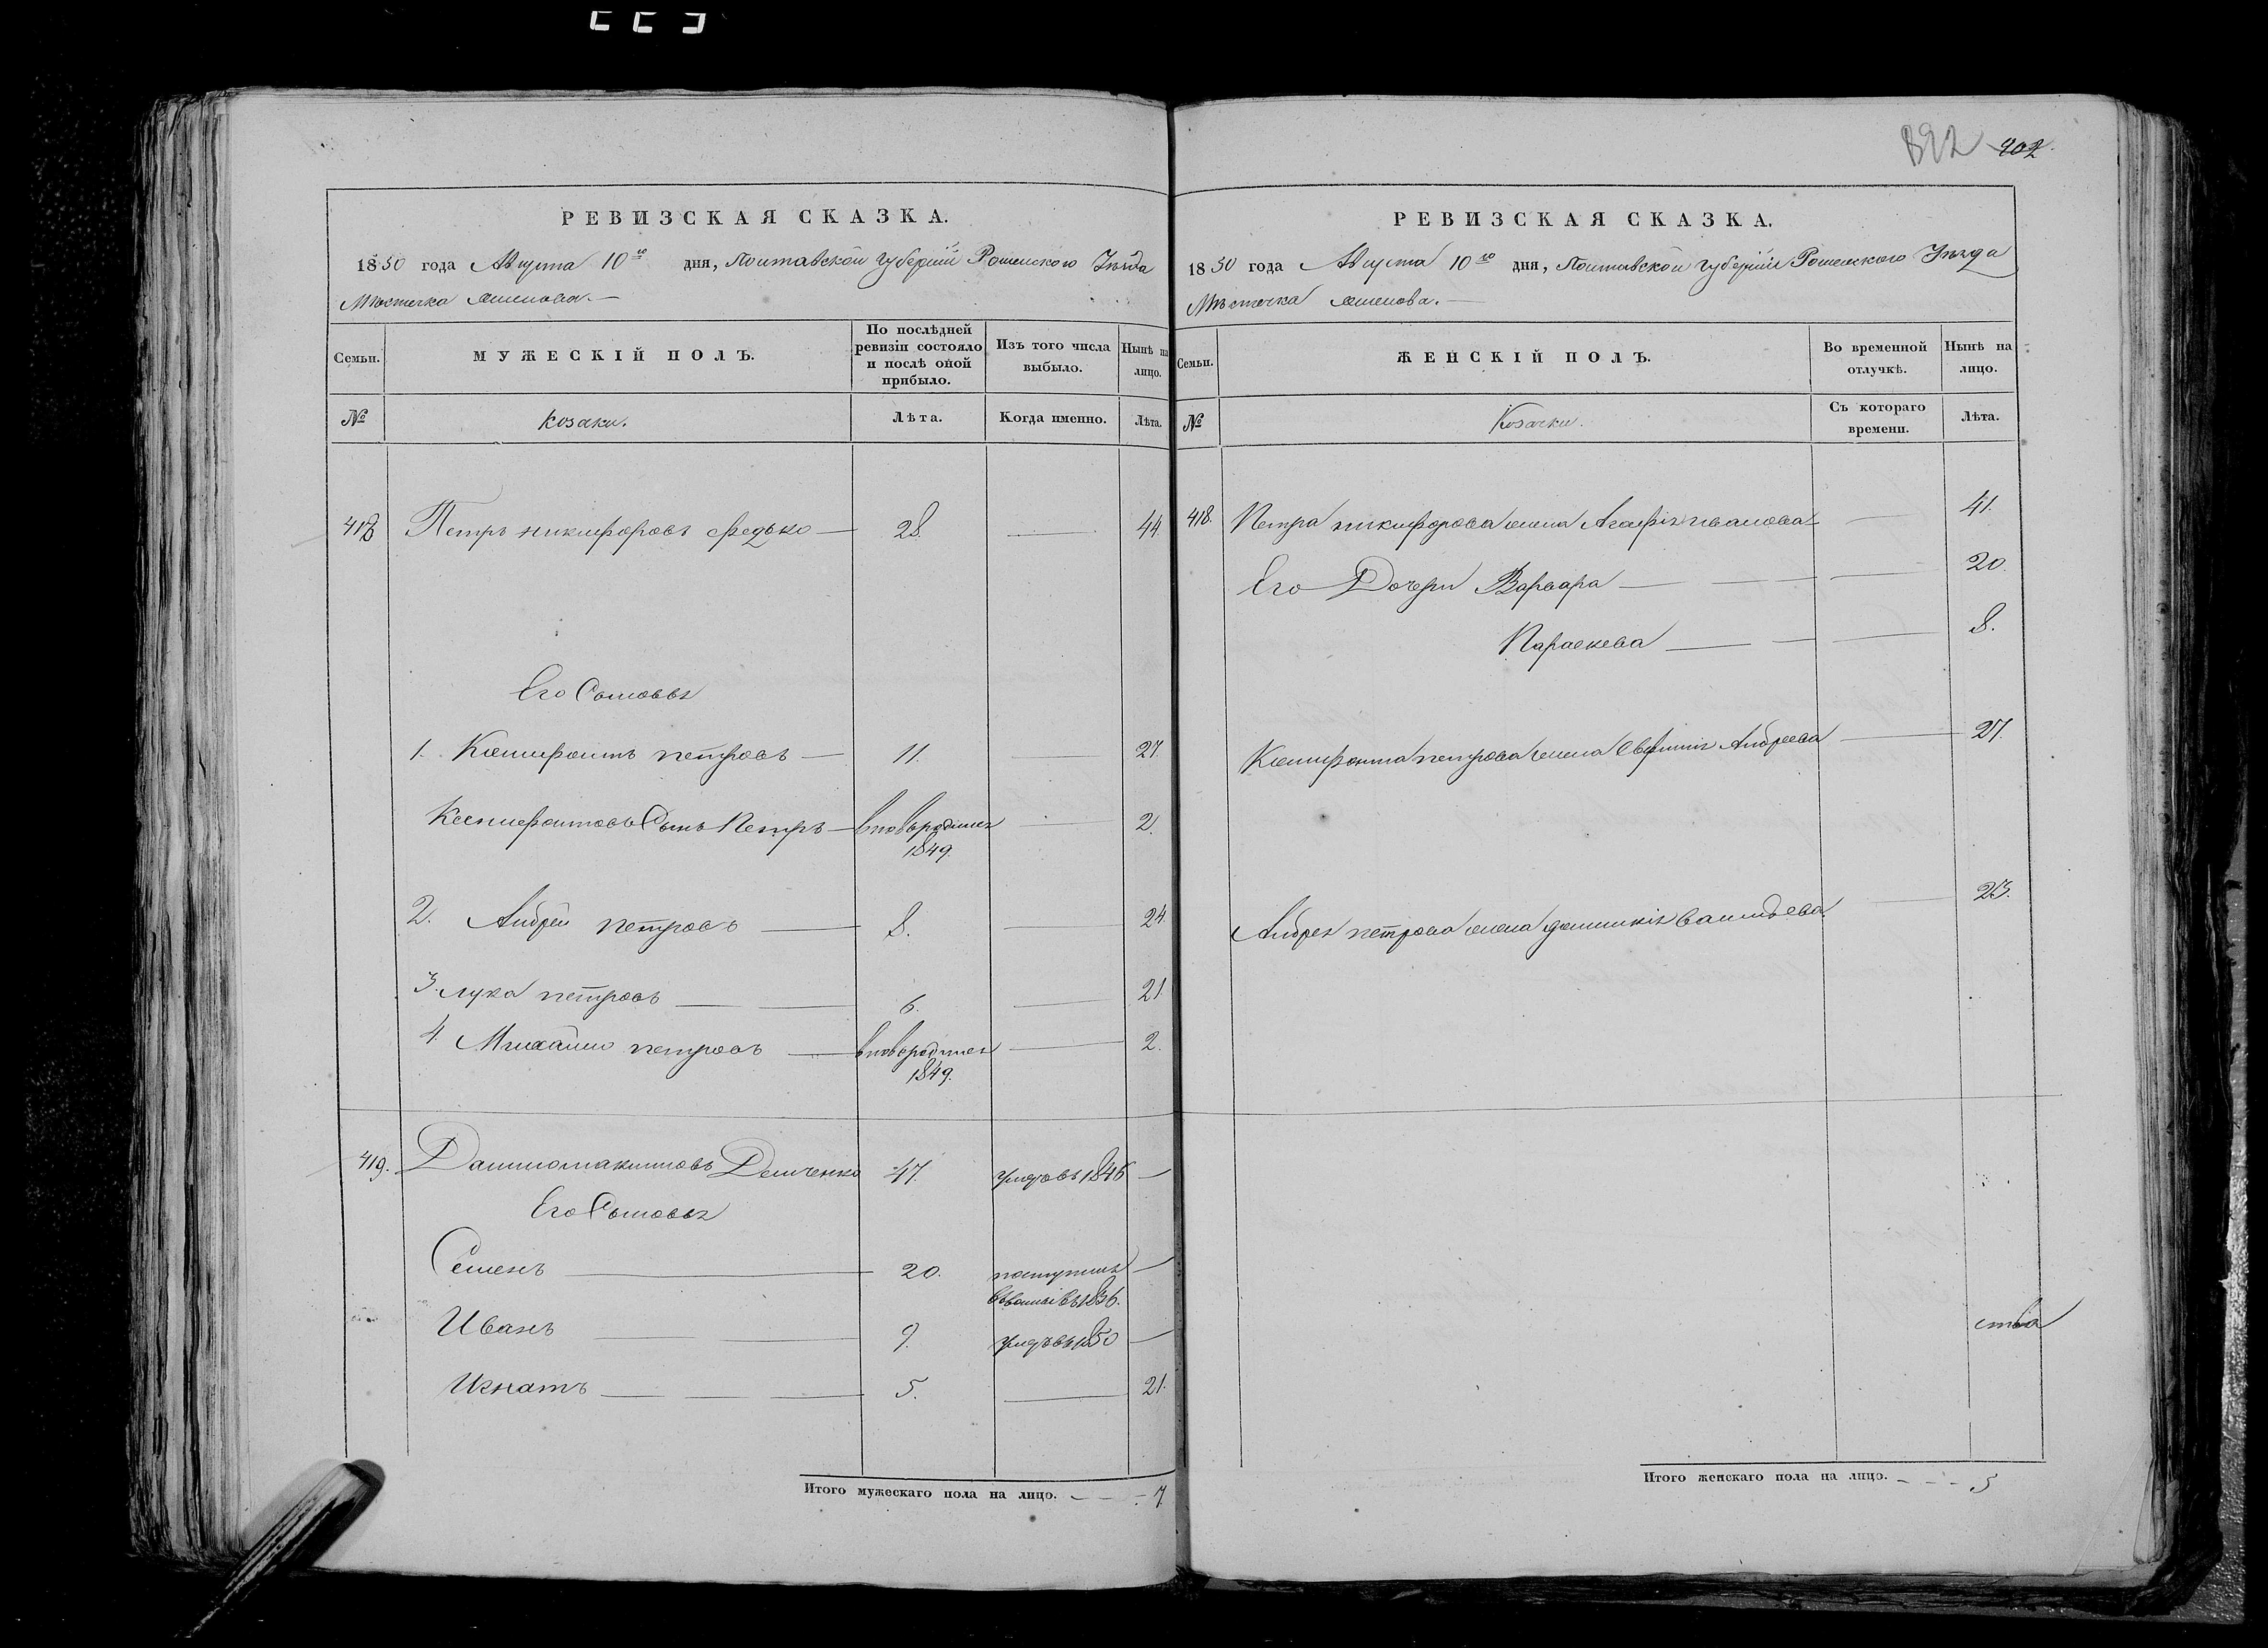 892 402.
РЕВИЗСКАЯ СКАЗКА.
1850 года Августа 10го дня, Полтавской Губернiи Роменского Уезда
Местечка
Семьи.
МУЖЕСКIЙ ПОЛЪ.
По послѣдней ревизiи состояло и послѣ оной прибыло.
Изъ того числа выбыло.
Нынѣ на лицо.
№
Козаки.
Лѣта.
Когда именно.
Лѣта.
418 Петръ никифоровъ Федько 28. 44.
Его Сыновья
1. Ксенифонтъ петровъ 11. 27.
Ксенифонтовъ Сынъ Петръ вновьродился 2.
1849.
2. Андрей петровъ 8. 24.
3. лука петровъ 6. 21.
4. Михайло петровъ вновьродился 2.
1849.
419. Данило Демченко 47. умеръ въ 1846
Его Сыновья
Семенъ 20. поступилъ
въ 1836.
Иванъ 9. умеръ въ 1850
Игнатъ 5. 21.
Итого мужескаго пола на лицо. 7
РЕВИЗСКАЯ СКАЗКА.
1850 года Августа 10го дня, Полтавской Губернiи Роменского Уезда
Местечка
Семьи.
ЖЕНСКIЙ ПОЛЪ.
Во временной отлучкѣ.
Нынѣ на лицо.
№
Козачки.
Съ котораго времени.
Лѣта.
418. Петра никифорова жена Агафiя иванова 41.
Его Дочери Варвара 20.
Параскева 8.
Ксенифонта петрова жена Евфимiя Андреева 27.
Андрея петрова жена васильева 23.
ства
Итого женскаго пола на лицо. 5